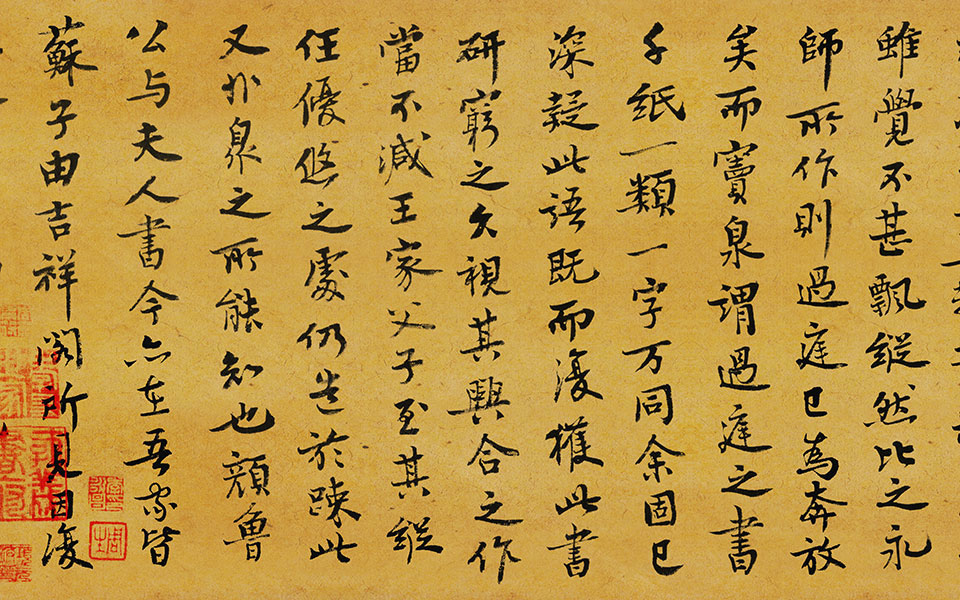 雖覺不甚飄縱然比之永
師所作則過庭已為奔放
矣而竇泉謂過庭之書
千紙一類一字万同余固已
深疑此語既而復獲此書
研窮之久視其興合之作
當不減王家父子至其縱
任優悠之處仍造於疎此
又非泉之所能知也顏魯
公与夫人書今亦在吾家皆
蘇子由吉祥閣所見因復